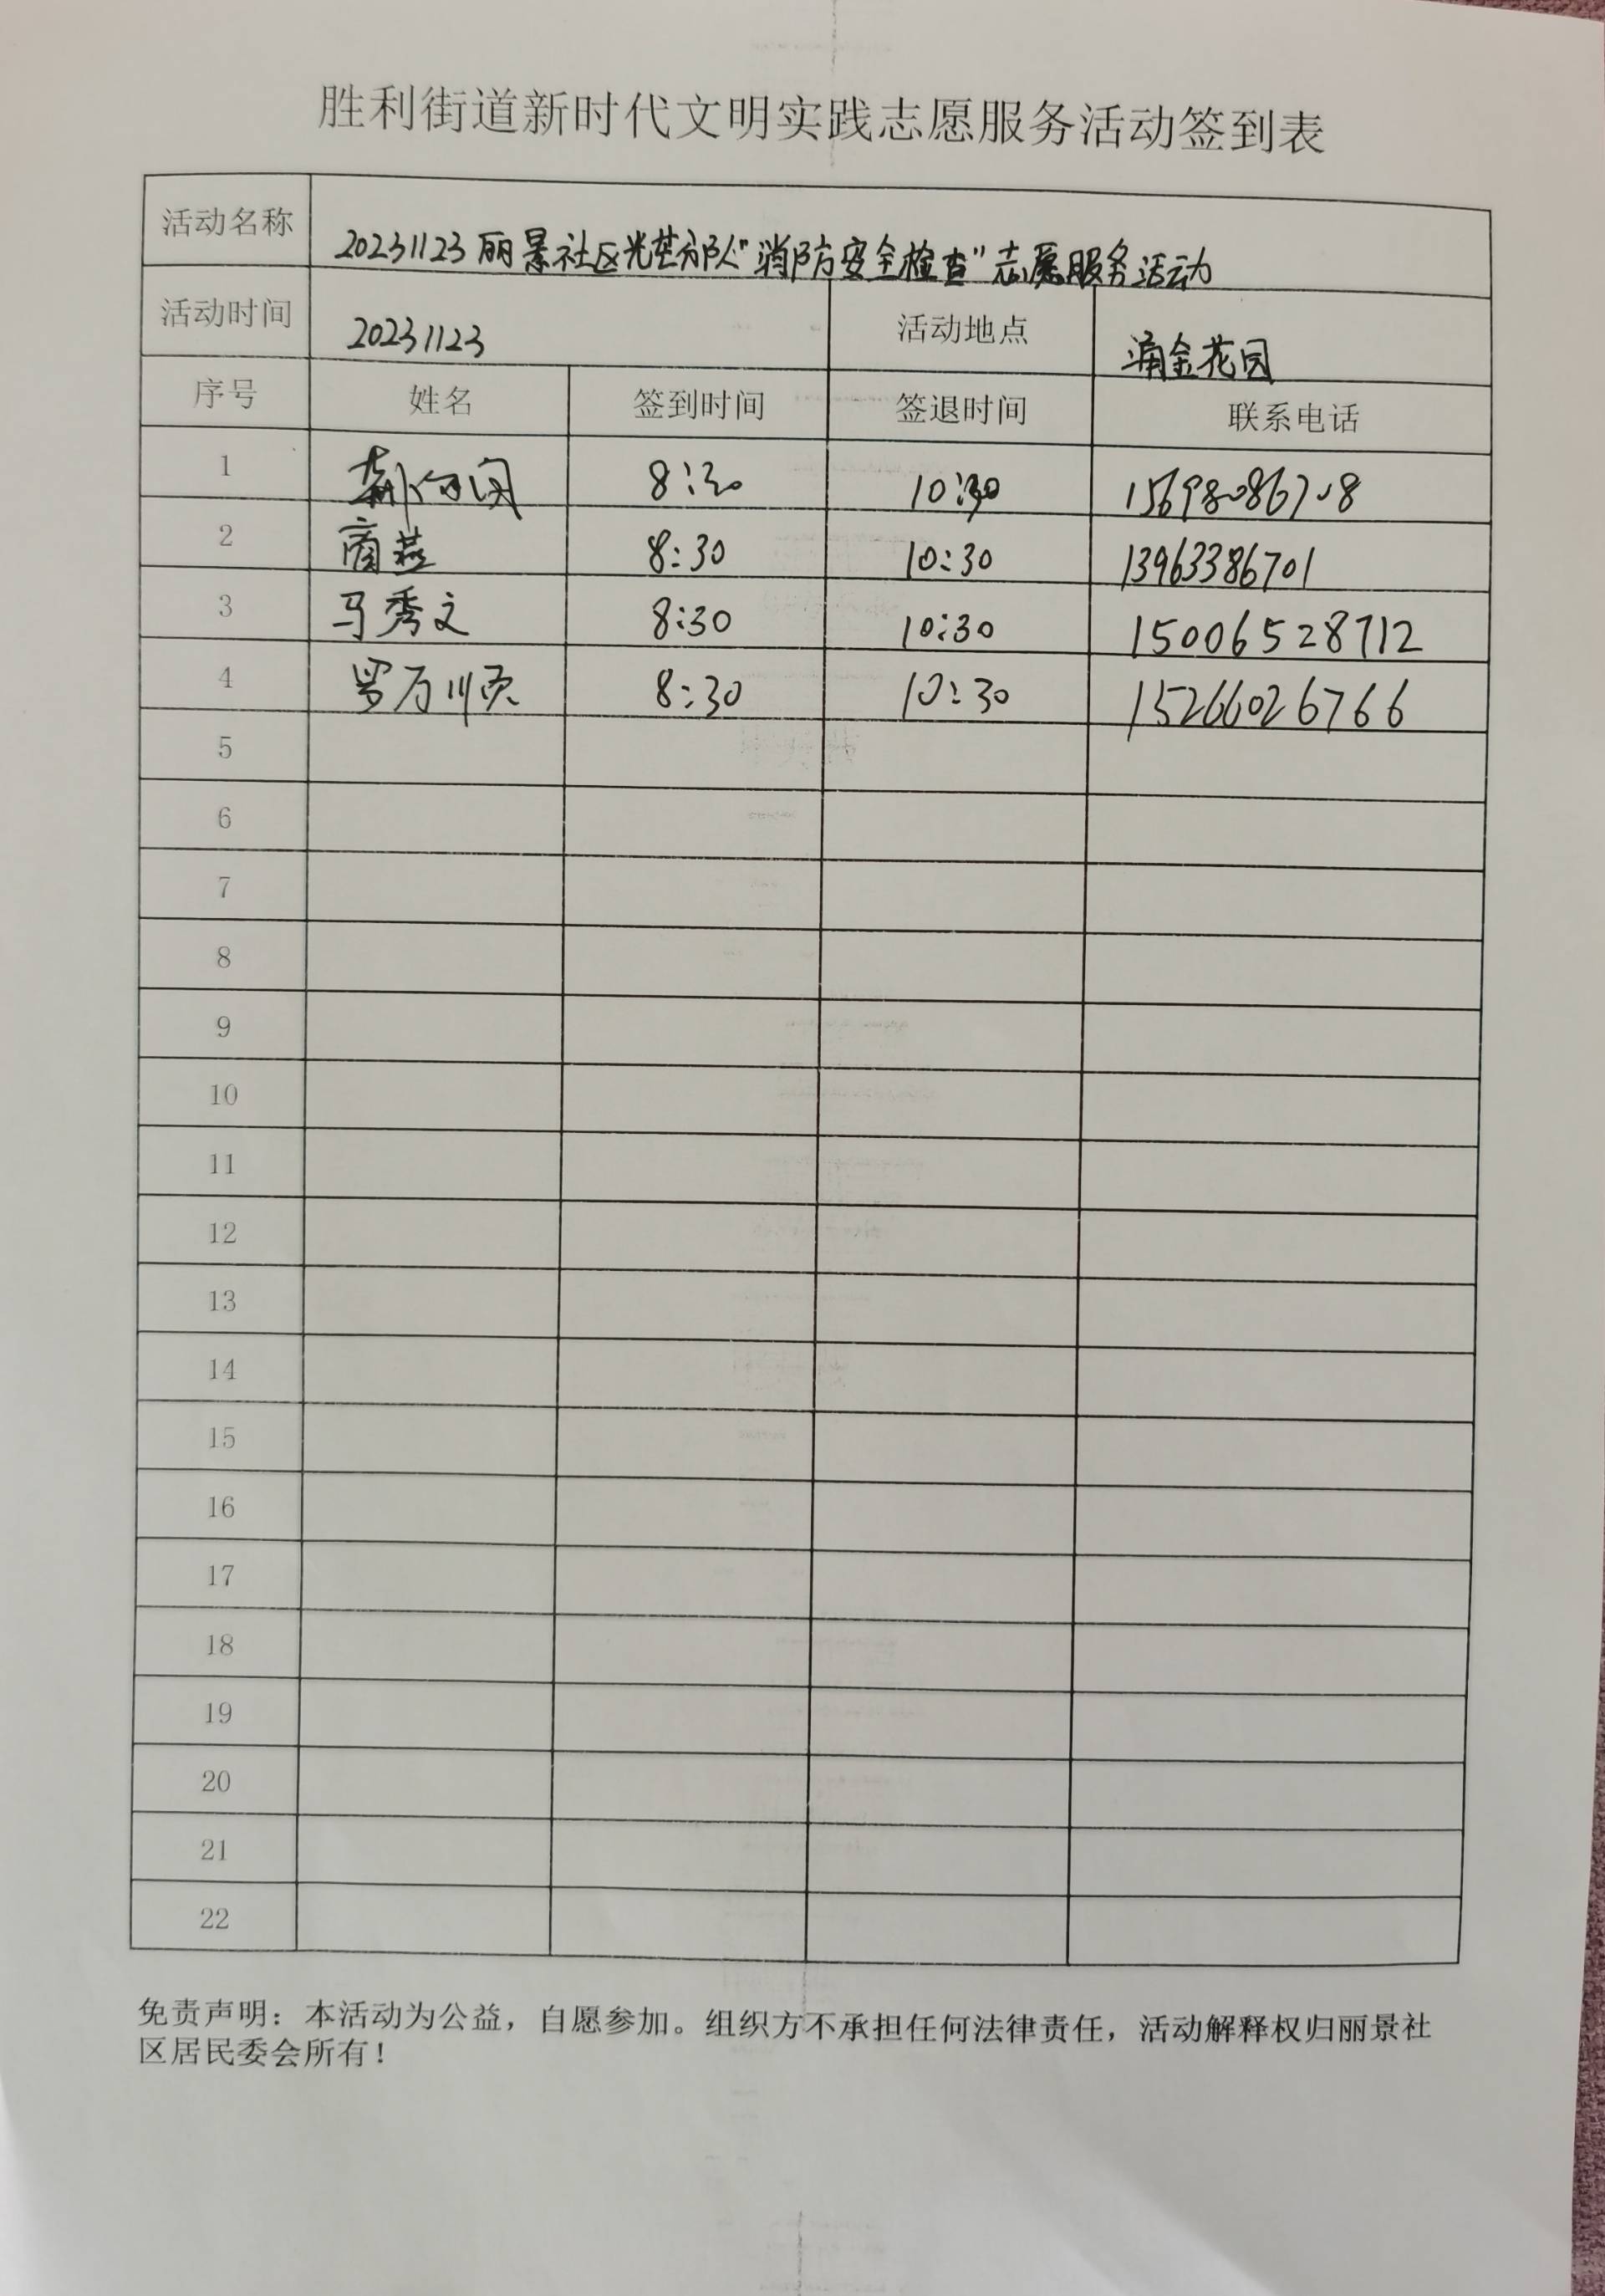 胜利街道新时代文明实践志愿服务活动签到表
活动名称 20231123丽景社区"消防安全检查"志愿服务活动
活动时间 20231123 活动地点 涌金花园
序号 姓名 签到时间 签退时间 联系电话
1 8:30 10:30 15698086708
2 商燕 8:30 10:30 13963386701
3 马秀文 8:30 10:30 15006528712
4 罗万顺 8:30 10:30 15266026766
5
6
7
8
9
10
11
12
13
14
15
16
17
18
19
20
21
22
免责声明：本活动为公益，自愿参加。组织方不承担任何法律责任，活动解释权归丽景社
区居民委会所有！